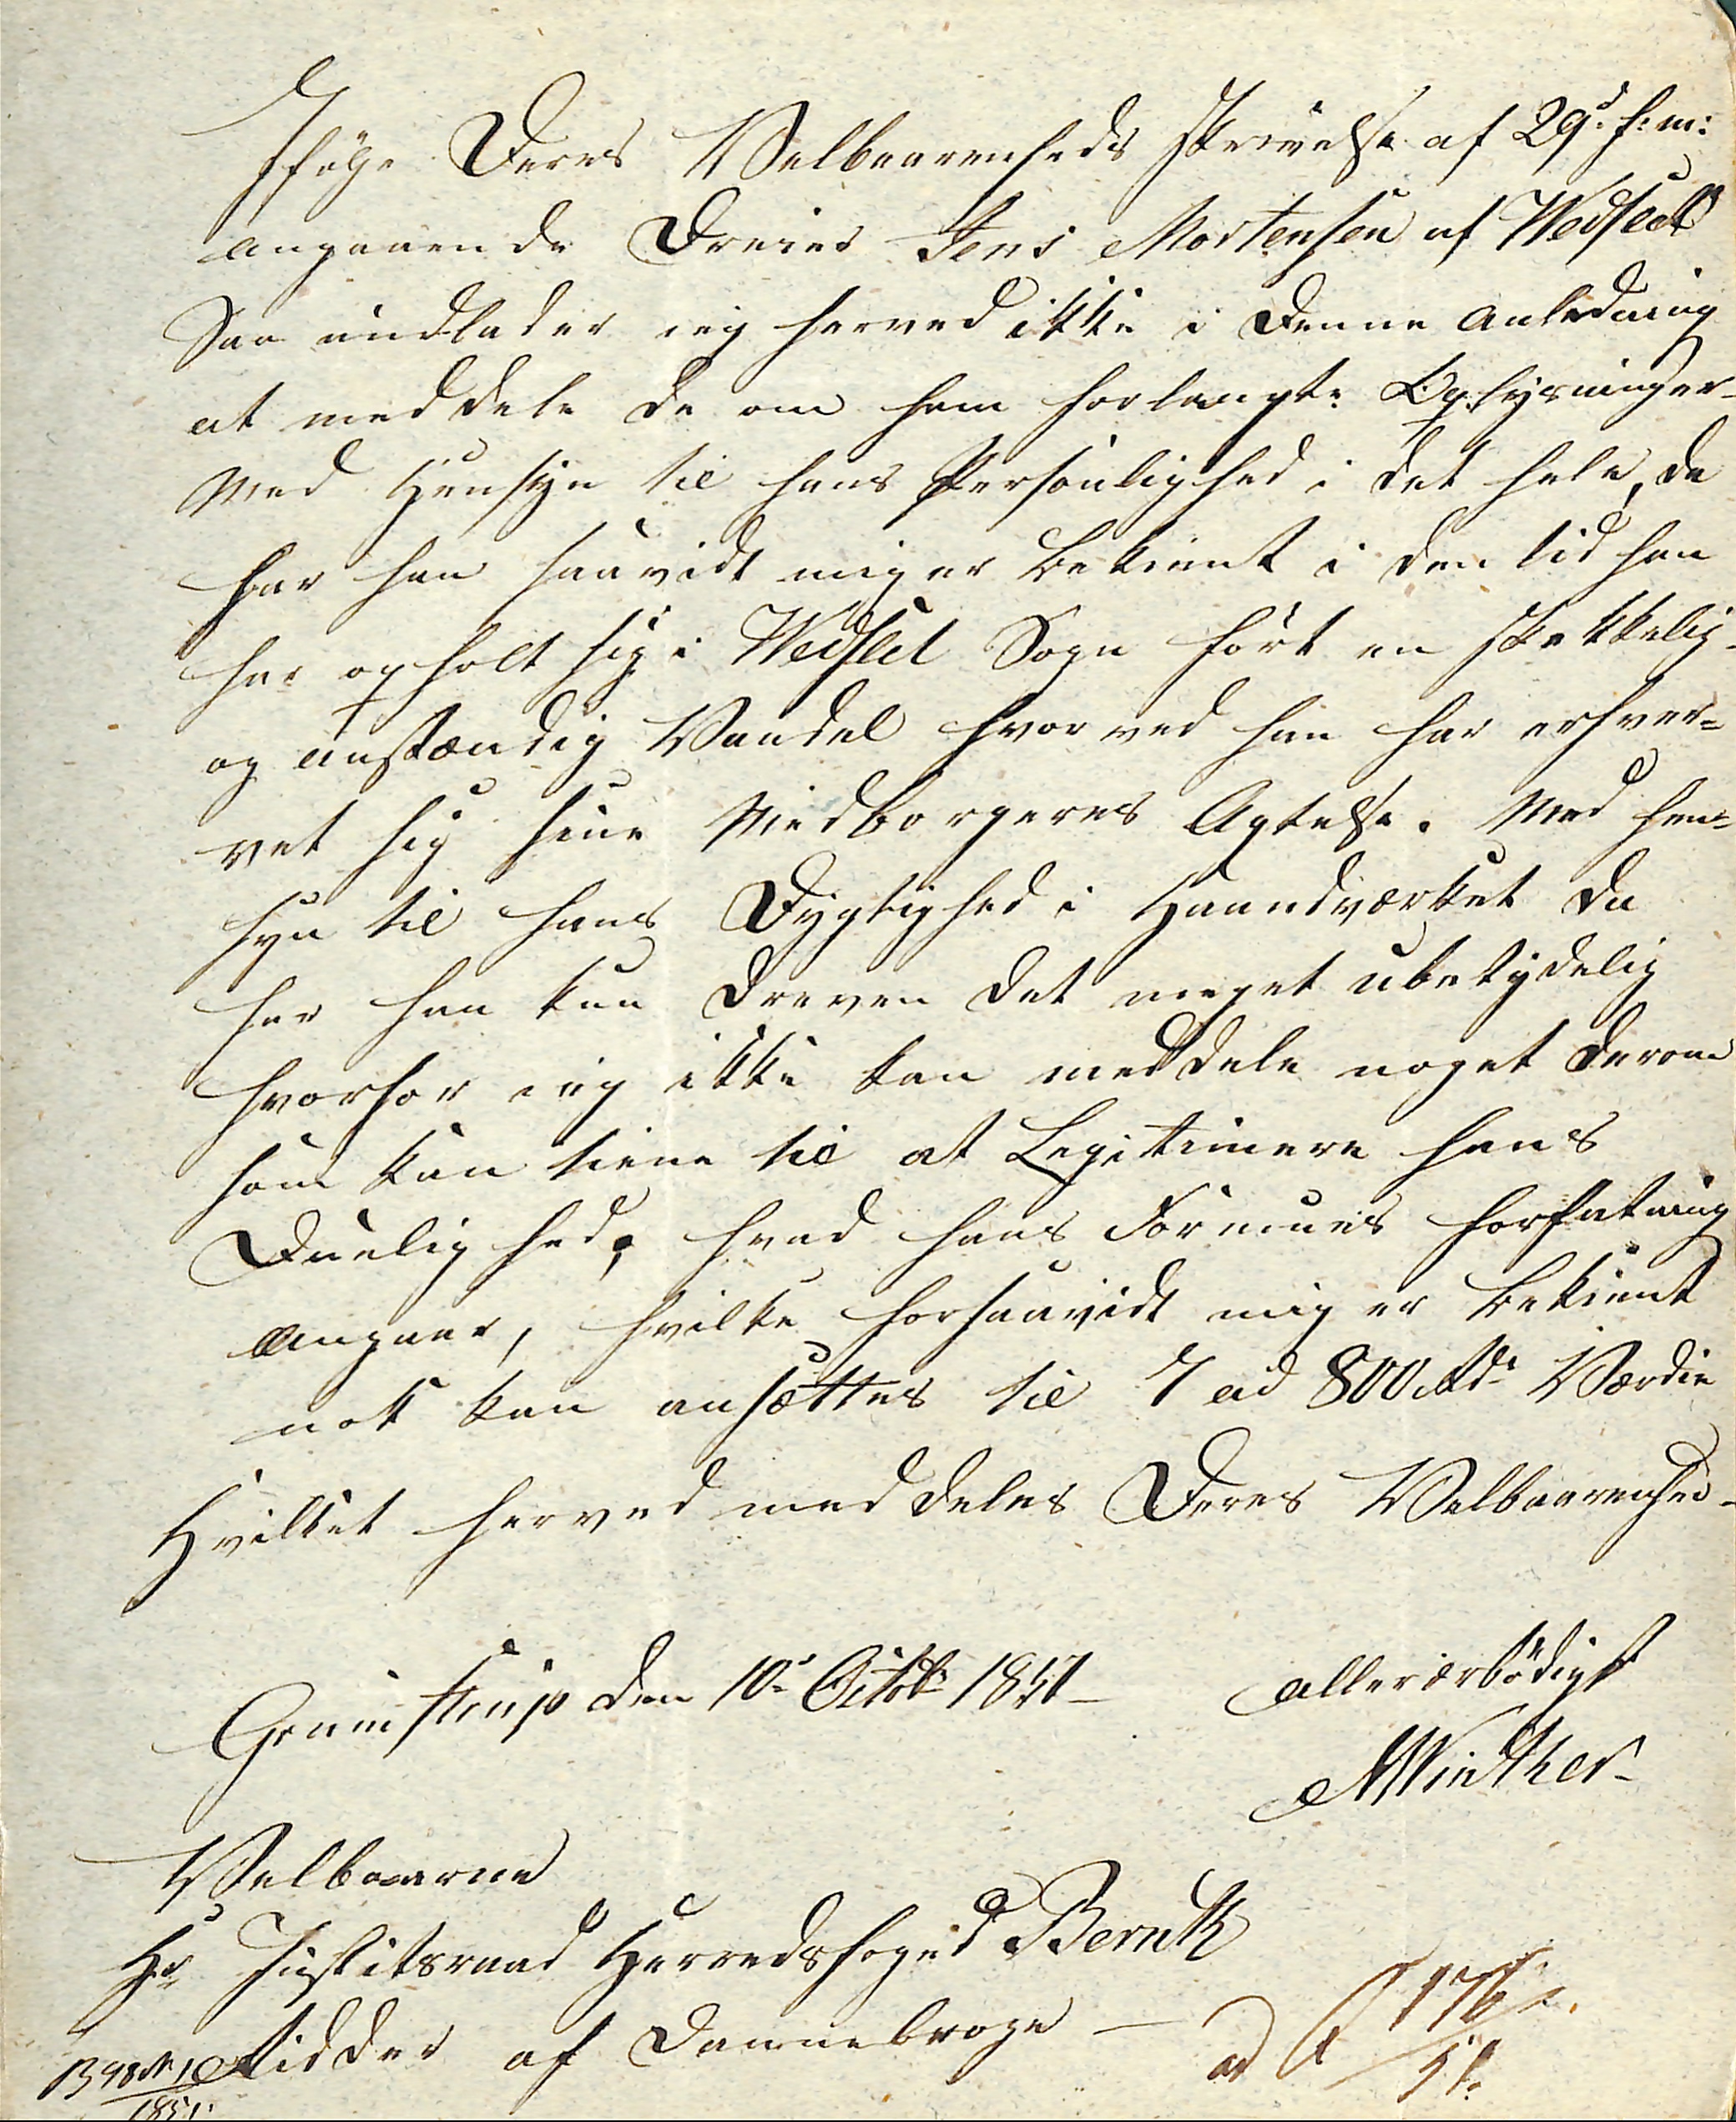 Ifølge Deres Velbaarenheds skrivelse af 29d. f: m:
angaaende Dreier Jens Mortensen af Wedslet
Saa undlader ieg herved ikke i denne Anledning
at meddele de om ham forlangte Oplysninger -
Med Hensyn til hans Personlighed i det hele, da
har han saavidt mig er bekient i den tid han
har opholt sig i Wedslet Sogn ført en skikkelig
og anstændig Vandel hvorved han har erhver=
vet sig sine Medborgeres Agtelse. Med hen=
syn til hans Dygtighed i Haandværket da
har han kun dreven det meget ubetydelig
hvorfor ieg ikke kan meddele noget derom
som kan tiene til at Legitimere hans
Duelighed, hvad hans Formues forfatning
angaar, hvilke forsaavidt mig er bekient
nok kan ansættes til 7 ad 800 Rd. Værdie
Hvilket herved meddeles Deres Velbaarenhed -
Grumstrup den 10d Octob: 1851 -
allerærbødigst
Winther
Velbaarne
Hr Justitsraad Herredsfoged Bernth
Ridder af Dannebroge —
ad 176
51.
1851.